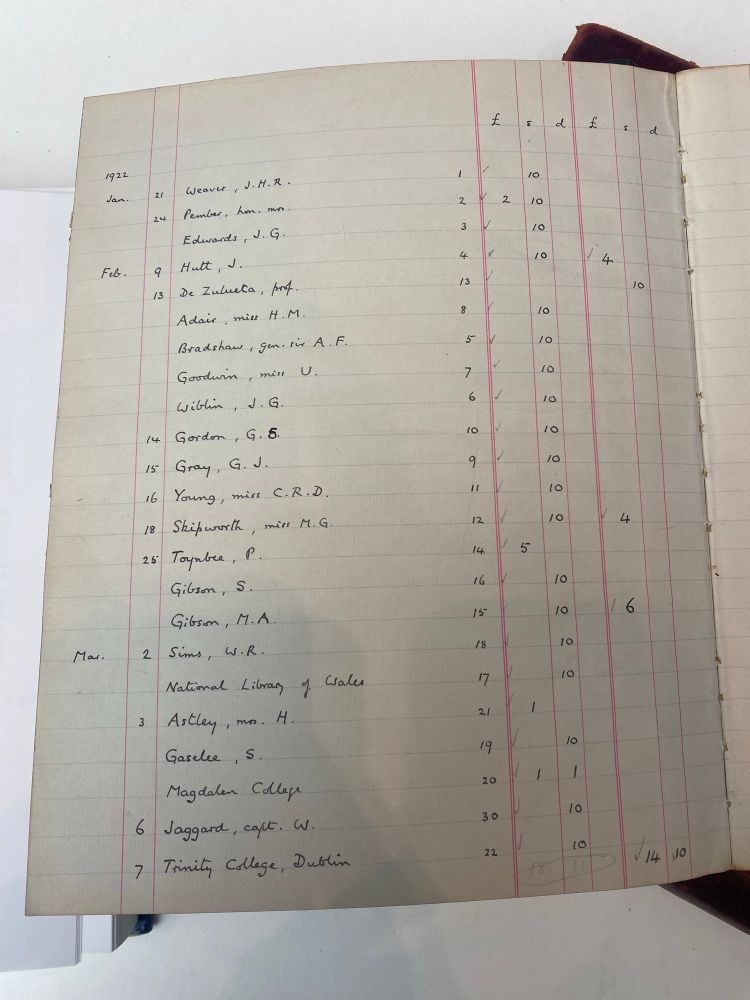 £ s d £ s d
1922
Jan. 21 Weaver, J.H.R. 1 ✓ 10
24 Pember, hon. mrs. 2 ✓ 2 10
Edwards, J.G. 3 ✓ 10
Feb. 9 Hutt, J. 4 ✓ 10 ✓ 4
13 De Zulueta, prof. 13 ✓ 10
Adair, miss H.M. 8 ✓ 10
Bradshaw, gen. sir A.F. 5 ✓ 10
Goodwin, miss U. 7 ✓ 10
Wiblin, J.G. 6 ✓ 10
14 Gordon, G.S. 10 ✓ 10
15 Gray, G.J. 9 ✓ 10
16 Young, miss C.R.D. 11 ✓ 10
18 Skipworth, miss M.G. 12 ✓ 10 ✓ 4
25 Toynbee, P. 14 ✓ 5
Gibson, S. 16 ✓ 10
Gibson, M.A. 15 ✓ 10 ✓ 6
Mar. 2 Sims, W.R. 18 ✓ 10
National Library of Wales 17 ✓ 10
3 Astley, mrs. H. 21 ✓ 1
Gaselee, S. 19 ✓ 10
Magdalen College 20 ✓ 1 1
6 Jaggard, capt. W. 30 ✓ 10
7 Trinity College, Dublin 22 ✓ 10 ✓ 14 10
18 11